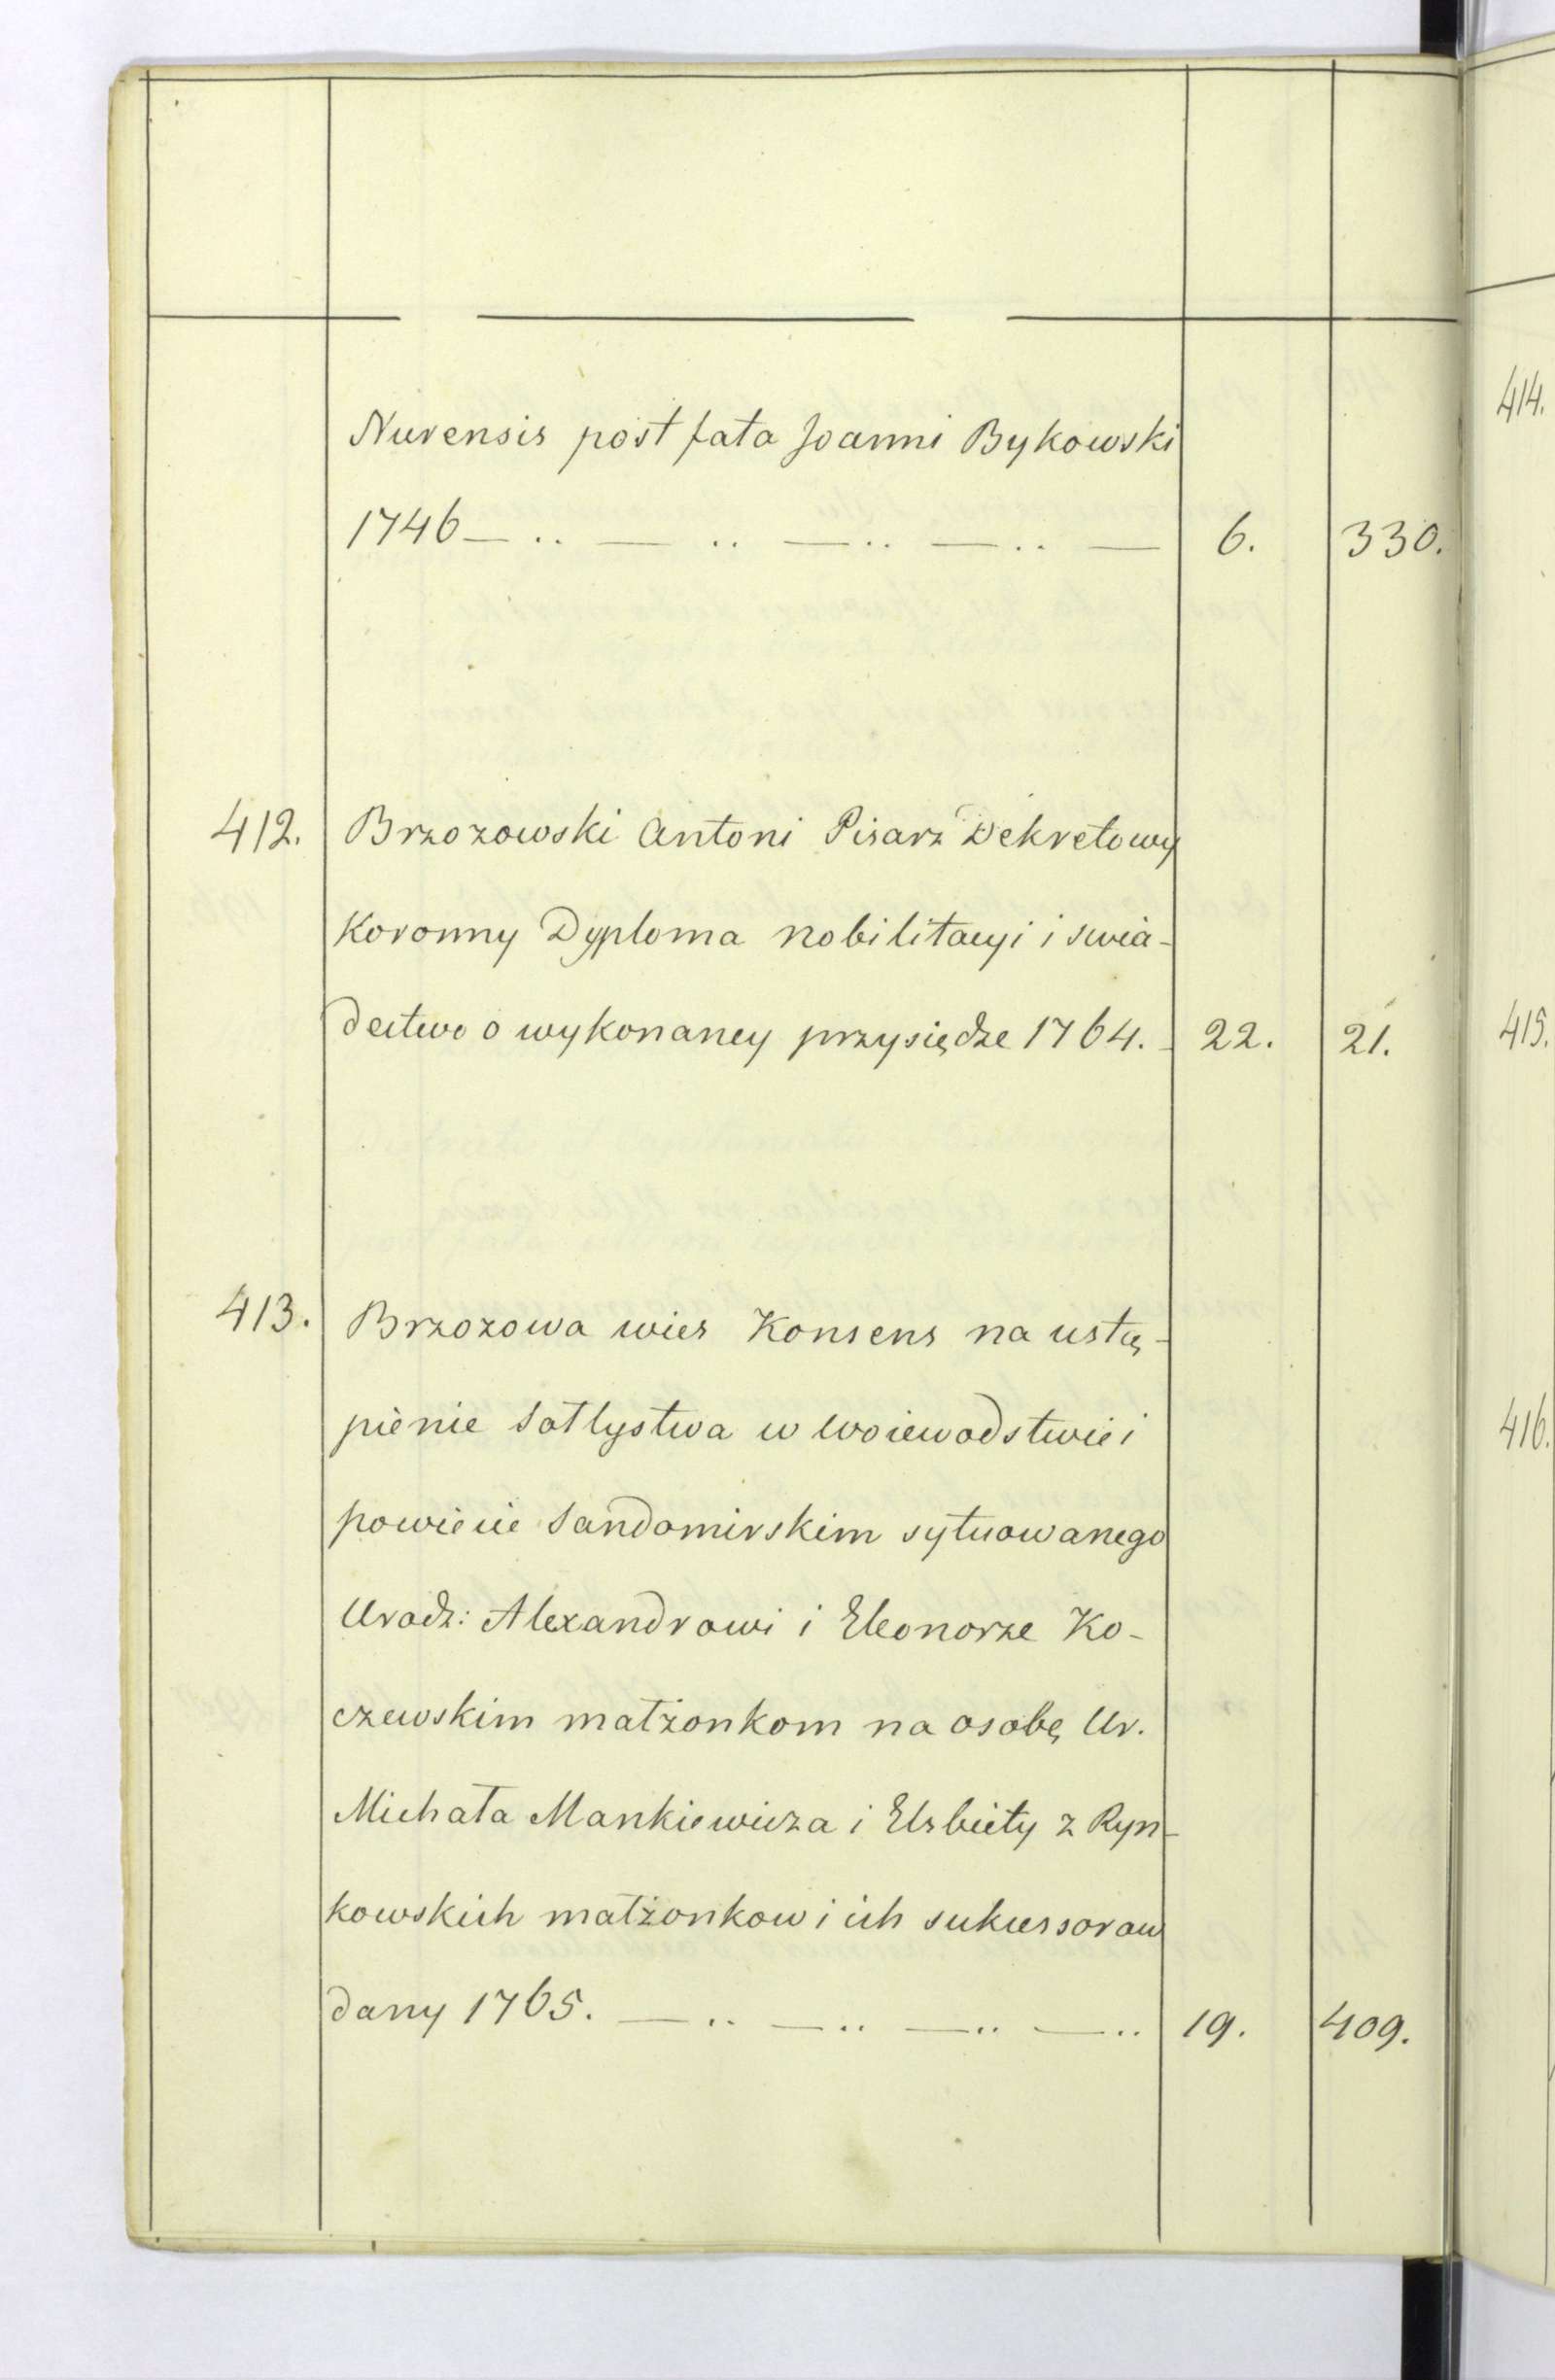 Nurensis post fata Joanni Bykowski
1746 — .. — .. — .. — .. — 6. 330.
412. Brzozowski Antoni Pisarz Dekretowy
Koronny Dyploma nobilitacyi i swia-
dectwo o wykonaney przysiędze 1764. 22. 21.
413. Brzozowa wies Konsens na ustą-
pienie Sołtystwa w Woiewodstwie i
powiecie Sandomirskim sytuowanego
Urodz: Alexandrowi i Eleonorze Ko-
czewskim małżonkom na osobę Ur.
Michała Mankiewicza i Elzbiety z Ryn-
kowskich małżonkow i ich sukcessorow
dany 1765. — .. — .. — .. — .. 19. 409.
414.
415.
416.